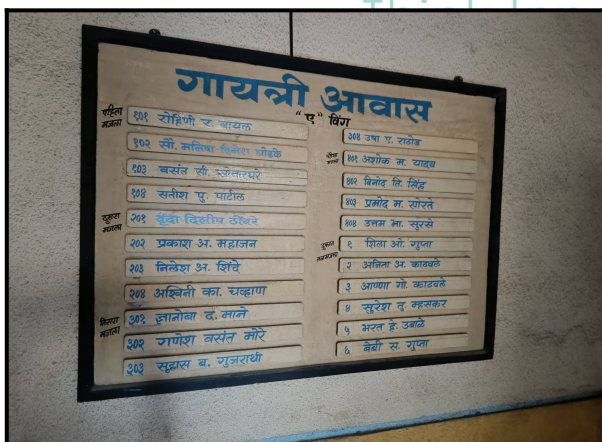 गायत्री आवास
"ए" विंग
पहिला मजला
१०१ रोहिणी र. बायल
१०२ सौ. मनिषा विलास घोडके
१०३ वसंत सी.
१०४ सतीश पु. पाटील
दुसरा मजला
२०१ वृंदा दिलीप ठोंबरे
२०२ प्रकाश अ. महाजन
२०३ निलेश अ. शिंदे
२०४ अश्विनी का. चव्हाण
तिसरा मजला
३०१ ज्ञानोबा द. माने
३०२ गणेश वसंत मोरे
३०३ सुहास ब. गुजराथी
३०४ उषा ए. राठोड
मजला
४०१ अशोक म. यादव
४०२ विनोद ति. सिंह
४०३ प्रमोद म. सोरते
४०४ उत्तम भा. सुरसे
१ शिला ओ. गुप्ता
२ अनिता अ. काठवले
३ आण्णा गो. काठवले
४ सुरेश तु. म्हसकर
५ भरत ह. उबाळे
६ बेबी स. गुप्ता